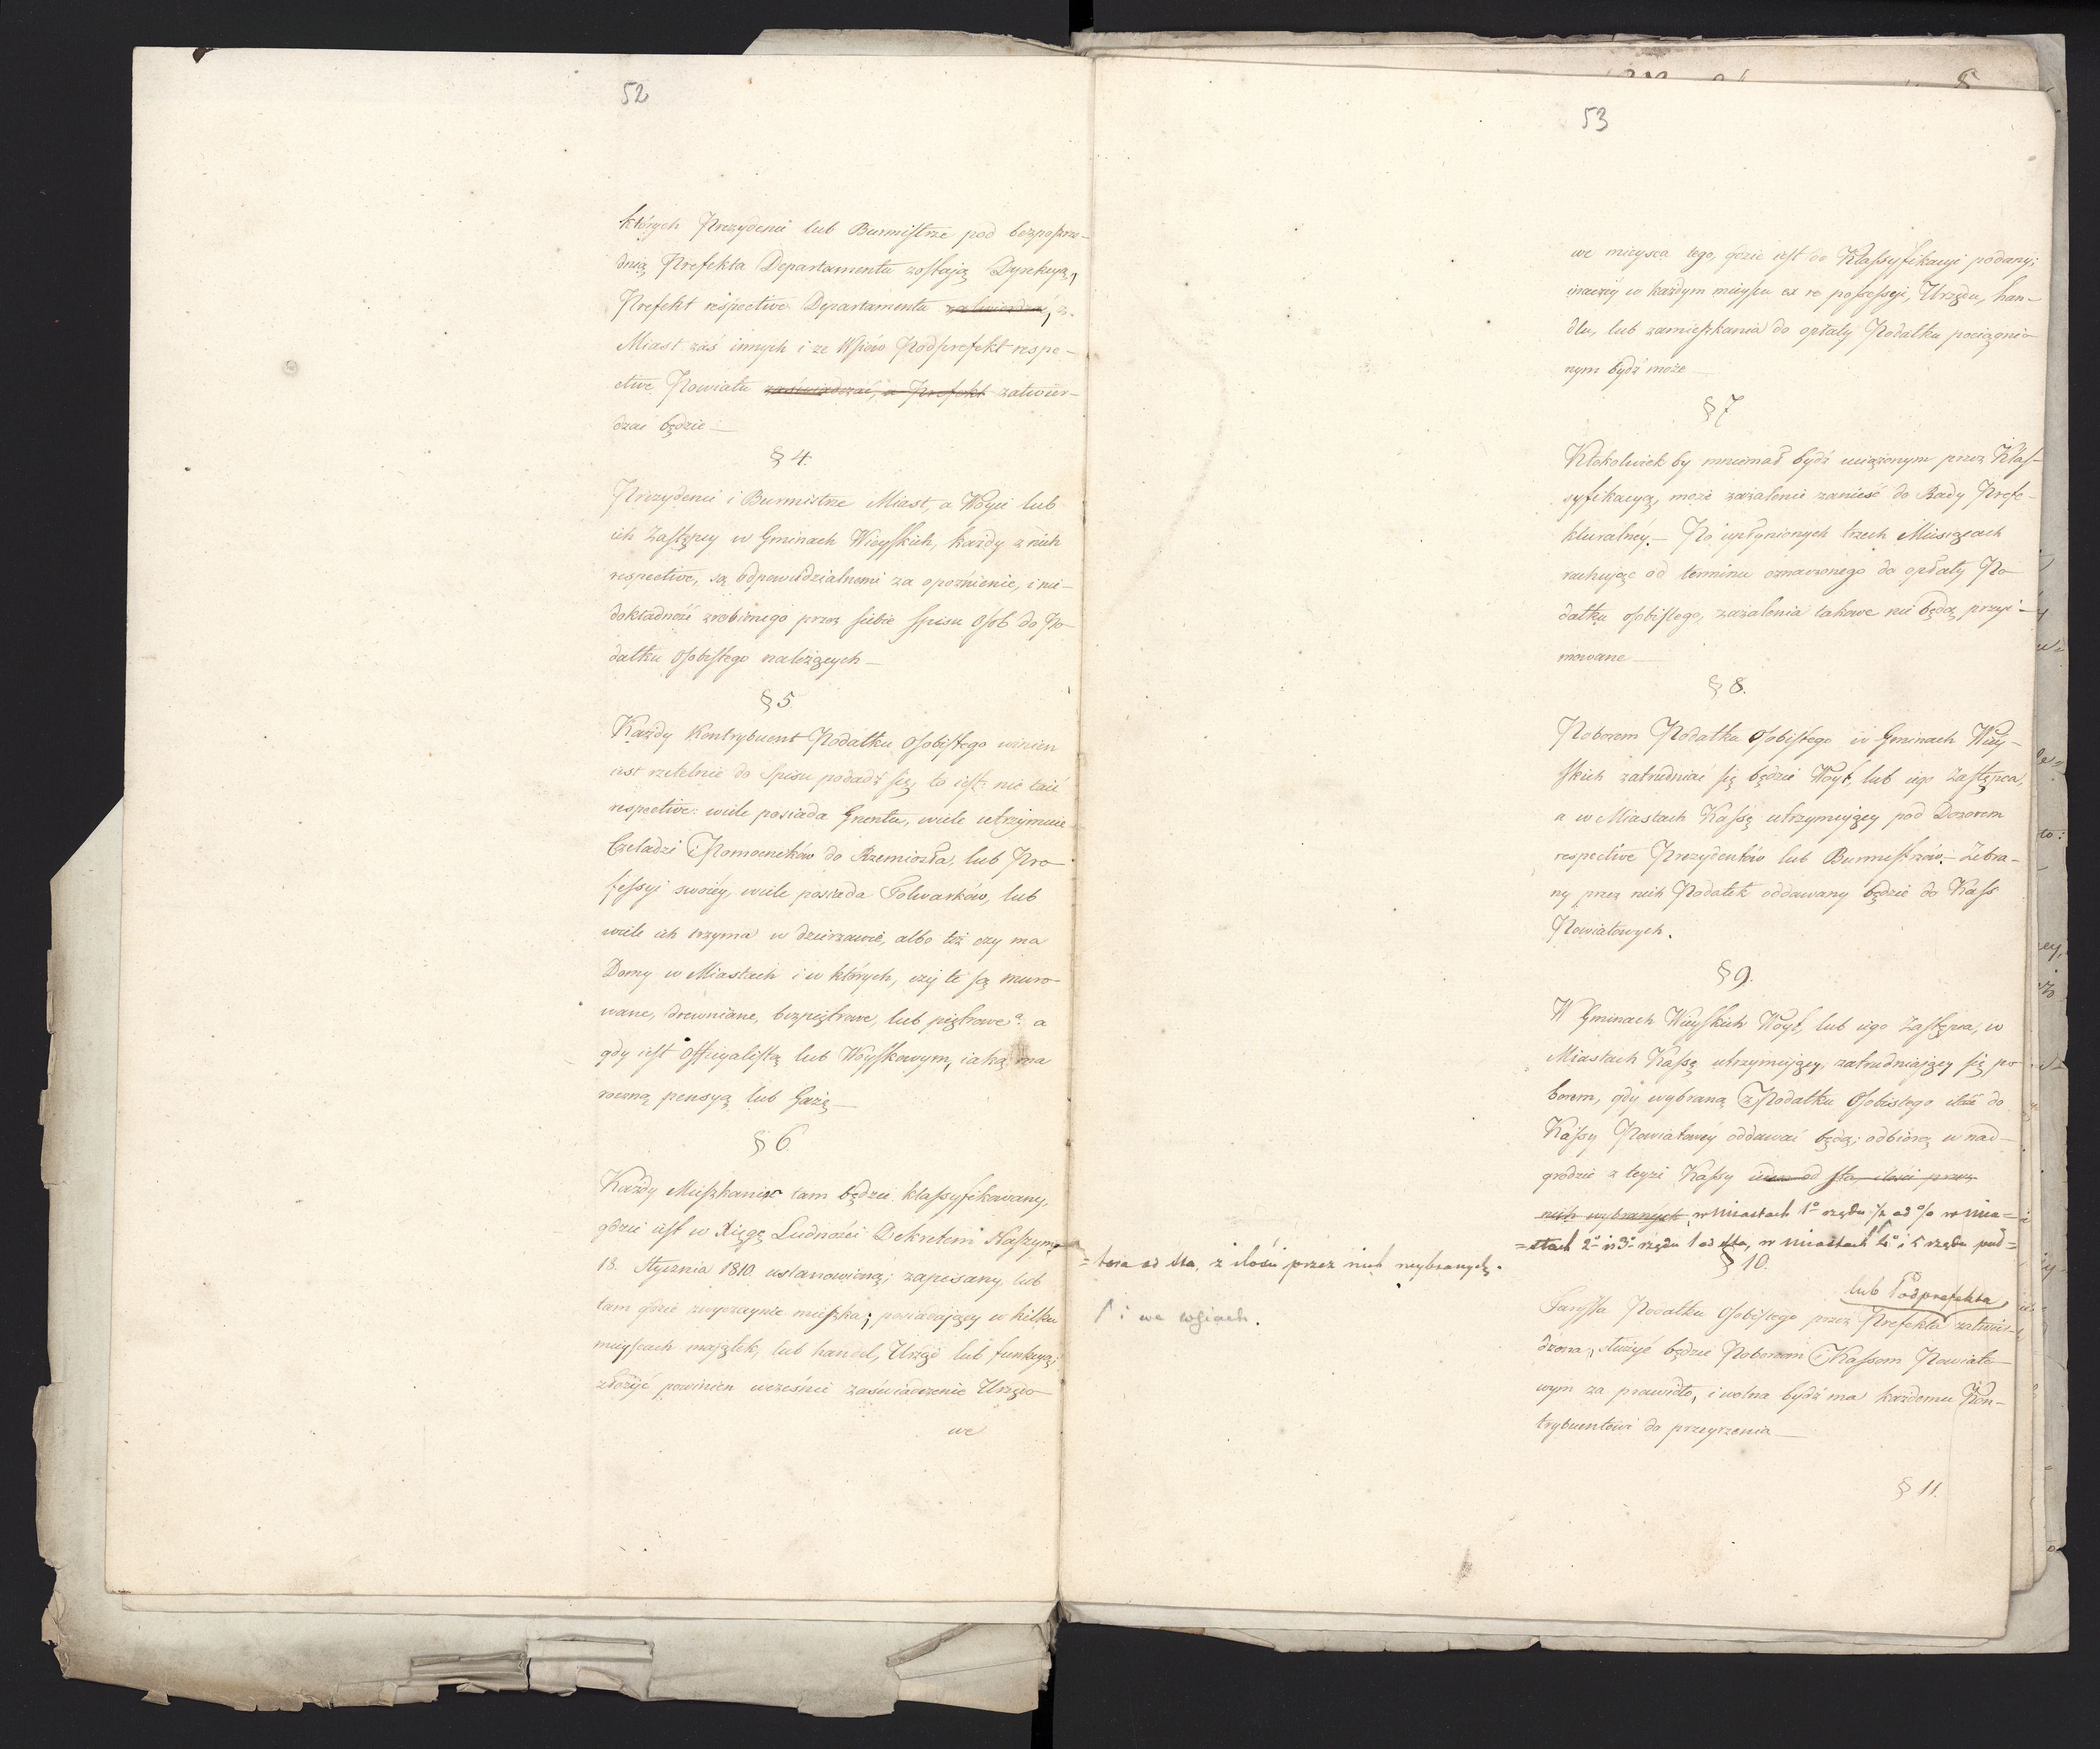 52
których Prezydenci lub Burmistrze pod bezpośrze-
dnią Prefekta Departamentu zostaią Dyrekcyą,
Prefekt respective Departamentu zatwierdzać, z
Miast zaś innych i ze Wsiów Podprefekt respe-
ctive Powiatu zaświadczać, a Prefekt zatwier-
dzać będzie —
§ 4.
Prezydenci i Burmistrze Miast, a Woyci lub
ich Zastępcy w Gminach Wieyskich, każdy z nich
respective, są odpowiedzialnemi za opoźnienie, i nie-
dokładność zrobionego przez siebie spisu Osób do Po-
datku Osobistego należących —
§ 5
Każdy Kontrybuent Podatku Osobistego winien
iest rzetelnie do Spisu podadź się, to iest: nie taić
respective: wiele posiada Gruntu, wiele utrzymuie
Czeladzi i Pomocników do Rzemiosła, lub Pro-
fessyi swoiéy, wiele posiada Folwarków, lub
wiele ich trzyma w dzierzawie, albo téż czy ma
Domy w Miastach i w których, czyi te są muro-
wane, drewniane, bezpiętrowe, lub piętrowe a
gdy iest Officyalistą lub Woyskowym, iaką ma
roczną pensyą lub Gażę —
§ 6.
Każdy Mieszkaniec tam będzie klassyfikowany,
gdzie iest w Xięgę Ludności Dekretem Naszym
18. Stycznia 1810. ustanowioną; zapisany, lub
tam gdzie zwyczaynie mieszka; posiadaiący w kilku
mieyscach maiątek, lub handel, Urząd lub funkcyą;
złożyć powinien wcześnie zaświadczenie Urzędo-
we
53
we mieysca tego, gdzie iest do Klassyfikacyi podany;
inaczéy w każdym mieyscu ex re possessyi, Urzędu, han-
dlu, lub zamieszkania do opłaty Podatku pociągnio-
nym bydź może —
§ 7
Ktokolwiek by mniemał bydź uciążonym przez Klas-
syfikacyą, może zażalenie zanieść do Rady Prefe-
kturalnéy. — Po upłynionych trzech Miesiącach
rachuiąc od terminu oznaczonego do opłaty Po-
datku osobistego, zażalenia takowe nie będą przyi-
mowane —
§ 8.
Poborem Podatku Osobistego w Gminach Wiey-
skich zatrudniać się będzie Woyt, lub iego Zastępca,
a w Miastach Kassę utrzymuiący pod Dozorem
respective Prezydentów lub Burmistrzów. — Zebra-
ny przez nich Podatek oddawany będzie do Kass
Powiatowych.
§ 9.
W Gminach Wieyskich Woyt, lub iego Zastępca, w
Miastach Kassę utrzymuiący, zatrudniaiący się po-
borem, gdy wybraną z Podatku Osobistego ilość do
Kassy Powiatowéy oddawać będą; odbiorą w nad-
grodzie z teyże Kassy ieden od sta, ilości przez
nich wybranych w Miastach 1o rzędu ½ od % w Mia=
=stach 2o i 3o rzędu 1 od sta, w Miastach 4o i 5 rzędu pół=
=tora od sta, z ilości przez nich wybranych.
i we wsiach.
§ 10.
lub Podprefekta,
Taryffa Podatku Osobistego przez Prefekta zatwier-
dzona, służyć będzie Poborcom i Kassom Powiato-
wym za prawidło, i wolna bydź ma każdemu Kon-
trybuentowi do przeyrzenia —
§ 11.